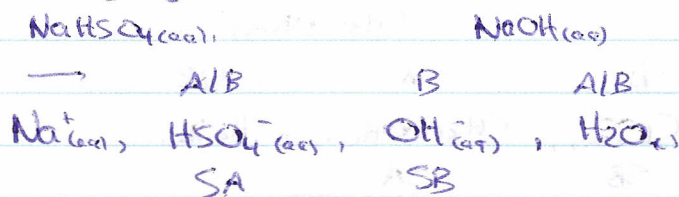 NaHSO₄(aq). NaOH(aq)
— A/B B A/B
Na⁺(aq), HSO₄⁻(aq), OH⁻(aq), H₂O(l)
SA SB